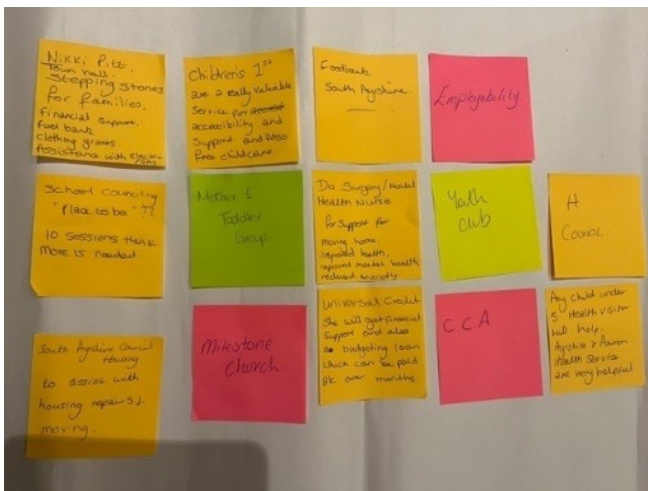 Nikki Pitt
Town hall.
Stepping Stones
for families.
financial support.
fuel bank
clothing grants.
Assistance with Electric
/gas
Children's 1st
are a really valuable
Service for access
accessibility and
Support and also
Free childcare.
Foodbank
South Ayrshire.
Employability
School councilling
"Place to be" ??
10 sessions think
more is needed
Mother &
Toddler
Group
Do Surgery/Mental
Health Nurse
for Support for
moving home.
improved health,
improved mental health
reduced anxiety.
Youth
club
A
South Ayrshire Council
Housing
to assist with
housing repairs &
moving.
Milestone
Church
Universal Credit
She will get financial
Support and also
budgeting loan
which can be paid
over months
CCA
Any child under
5 Health visitor
will help.
Ayrshire & Aarran
Health Service
are very helpful